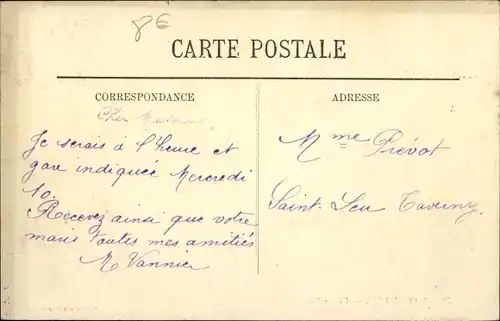 8E
CARTE POSTALE
CORRESPONDANCE
ADRESSE
Cher Madame,
Je serais à l'heure et
gare indiquée Mercredi
10.
Recevez ainsi que votre
maris toutes mes amitiés
M Vannier
Mme Prévot
Saint-Leu Taverny